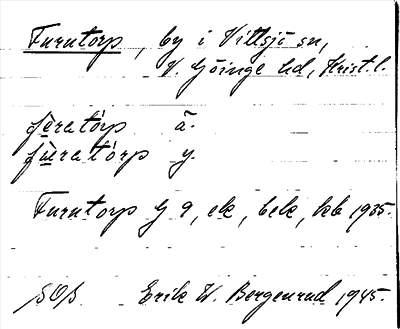 Furutorp, by i Vittsjö sn,
V. Göinge hd, Krist. l.
fèratórp ä.
fùratórp y.
Furutorp G 9, ek, bek, kb 1935.
SOS Erik W. Bergenrud 1945.